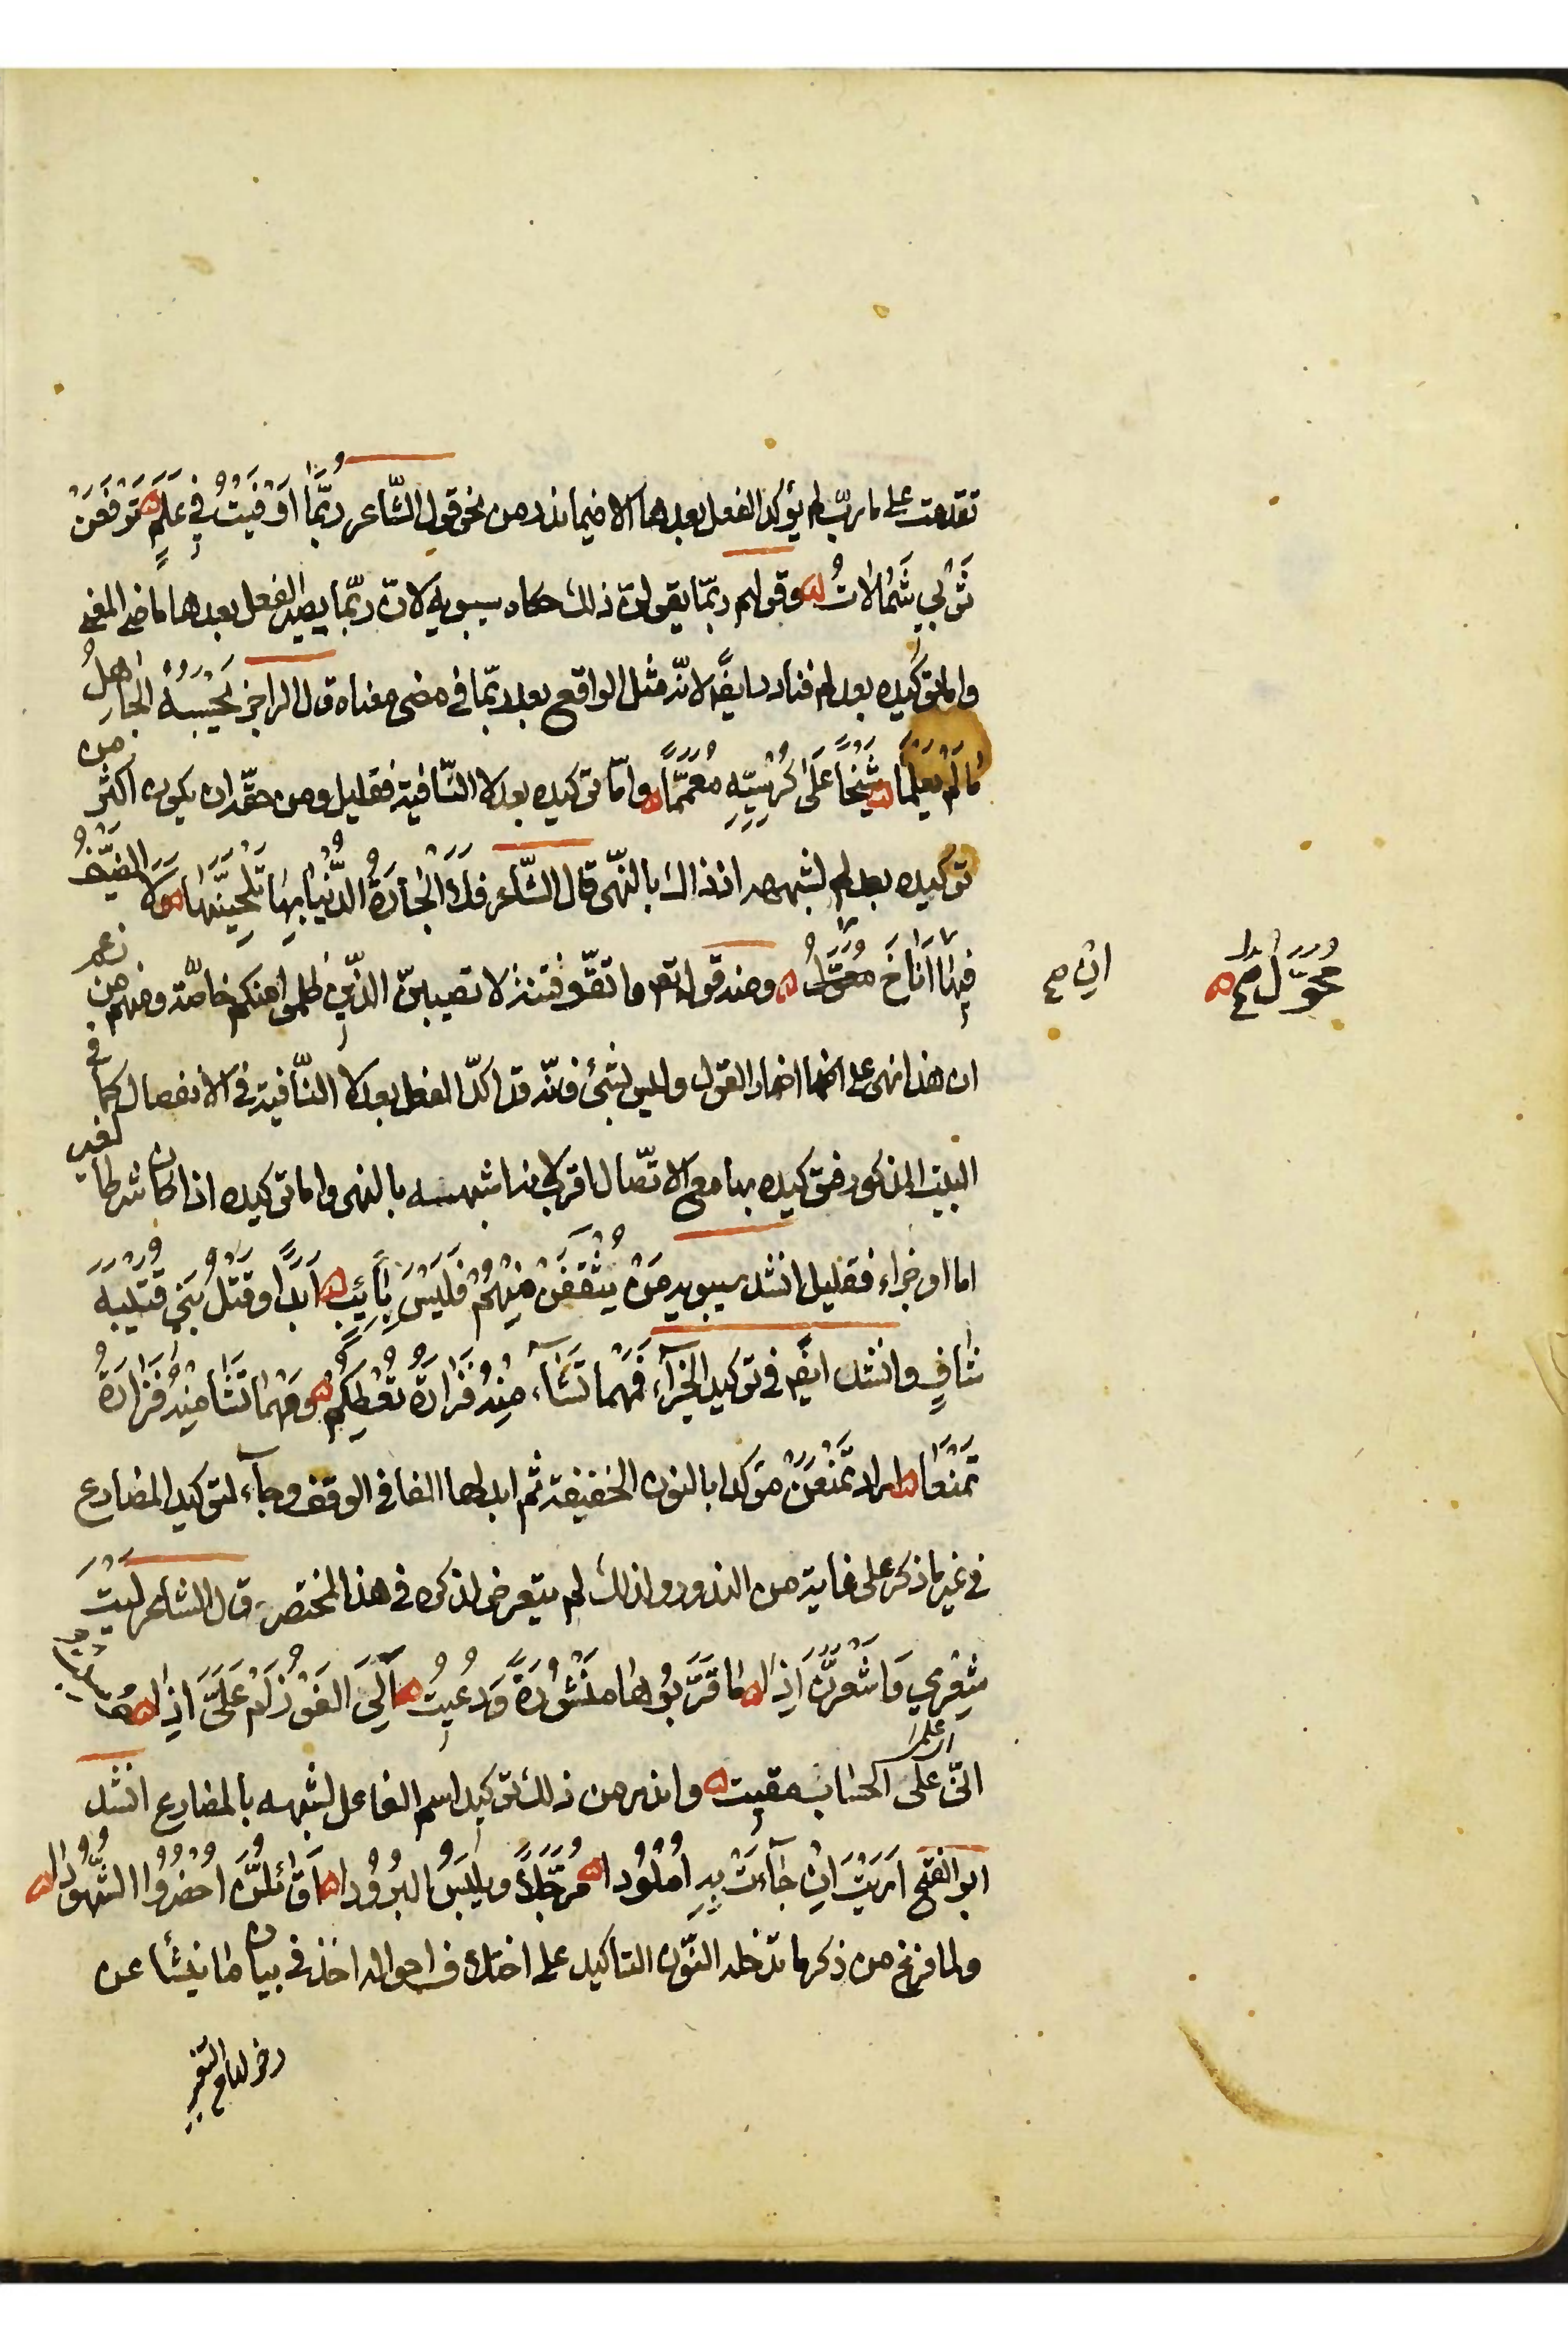 تقدمت على ما ربّ لم يؤكد الفعل بعدها الا فيما ندر من نحو قول الشّاعر رُبَّمَا اَوْفَيْتُ فِي عَلَمٍ تَرْفَعَنْ
ثَوْبِي شَمَالَاتُ وقولهم ربّما يقولنّ ذلك حكاه سيبويه لانّ ربّما يصير الفعل بعدها ماضي المعنى
واما توكيده بعد لم فنادر ايضًا لانّه مثل الواقع بعد ربّما في مضى معناه قال الراجز يَحْسَبُهُ الجَاهِلُ
مَا لَمْ يَعْلَمَا شَيْخًا عَلَى كُرْسِيِّهِ مُعَمَّمًا وامّا توكيده بعد لا النّافية فقليل ومن حقّه ان يكون اكثر من
توكيده بعد لم لشبهه اذ ذاك بالنّهى قال الشّاعر فَلَا الجَارَةُ الدُّنْيَا بِهَا تَلْحَيَنَّهَا وَلَا الضَّيْفُ
فِيهَا اَنَاخَ مُحَوَّلُ ومنه قوله تعم واتقّو فتنة لا تصيبنّ الذّين ظلموا منكم خاصّة ومنهم من زعم
ان هذا نهى على اضمار القول وليس بشئ فانّه قد اكّد الفعل بعد لا النّافية في الانفصال كما في
البيت المذكور فتوكيده بها مع الاتّصال اقرب لانه اشبهه بالنهى واما توكيده اذا كان شرطا لغير
اما او جزاء فقليل انشد سيبويه مَنْ يُثْقَفَنْ مِنْهُمْ فَلَيْسَ بِآئِبِ اَبَدًا وَقَتْلُ بَنِي قُتَيْبَةَ
شَافٍ وانشد ايضًا في توكيد الجزآء فَمَهْمَا تَشَآء مِنْهُ فَزَارَةُ تُعْطِكُمُ وَمَهْمَا تَشَا مِنْهُ فَزَارَةُ
تَمْنَعَا اراد تَمْنَعَنْ مؤكدا بالنون الخفيفة ثم ابدلها الفا في الوقف وجآء توكيد المضارع
في غير ما ذكر على غاية من الندور ولذلك لم يتعرض لذكره في هذا المختصر قال الشاعر لَيْتَ
شِعْرِي وَاشْعُرَنَّ اِذَا مَا قَرَّبُوهَا مَنْشُورَةً وَدُعِيتُ اَلِيَ الفَوْزُ اَمْ عَلَيَّ اِذَا
انّى على الحساب مقيت واندر من ذلك توكيد اسم الفاعل لشبهه بالمضارع انشد
ابو الفتح اَرَيْتَ اِنْ جَآءَتْ بِهِ اُمْلُودَا مُرَجَّلاً وَيَلْبَسُ البُرُودَا اَقَائِلُنَّ اَحْضِرُوا الشُّهُودَا
ولما فرغ من ذكر ما تدخله النّون التاكيد على اختلاف احواله اخذ في بيان ما ينشأ عن
محوّل صح
ان صح